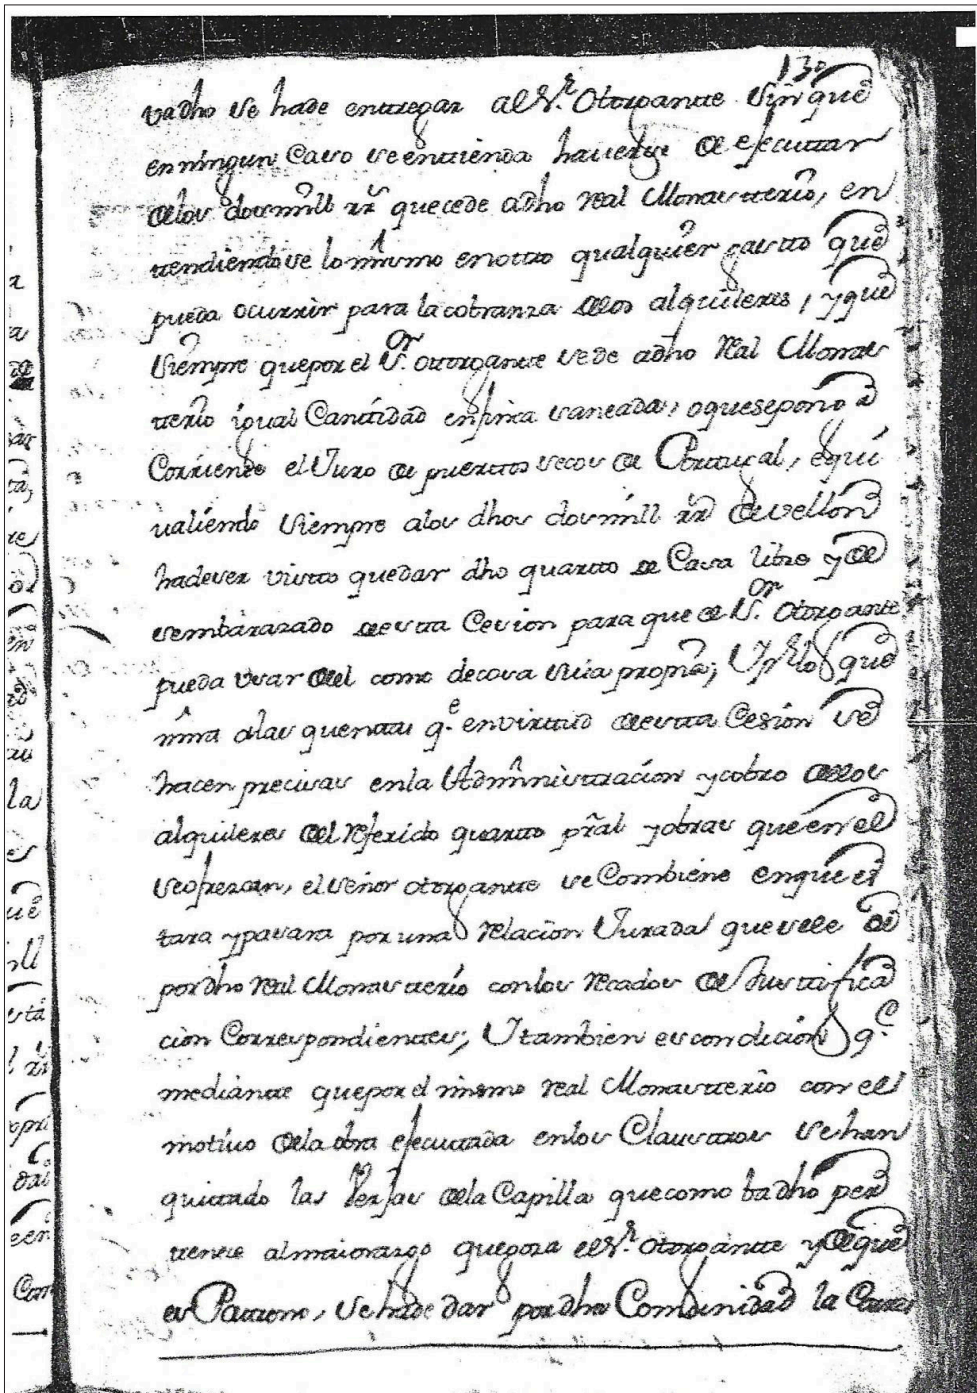 130
va dho se ha de entregar al Sr. Otorgante sin que
en ningun Caso se entienda haverse de ejecutar
de los dos mill rr. que cede a dho Real Monasterio, en
tendiendose lo mismo en otro qualquier gasto que
pueda ocurrir para la cobranza de los alquileres, y que
siempre que por el Sor. otorgante se de a dho Real Monas
terio igual Cantidad en finca saneada, o que se ponga
Corriente el Juro de puertos secos de Portugal, equi
valiendo siempre a los dhos dos mill rr. de vellon
ha de ser visto quedar dho quarto de Casa libre y de
sembarazado de esta Cesion para que el Sor. Otorgante
pueda usar de el como de cosa suia propria; Y por lo que
mira a las quentas qe. en virtud de esta Cesion se
hacen precisas en la Administracion y cobro de los
alquileres del referido quarto pral y obras que en el
se ofrezcan, el señor otorgante se Combiene en que es
tara y pasara por una relacion Jurada que se le de
por dho Real Monasterio con los recados de Justifica
cion Correspondientes; Y tambien es condicion qe.
mediante que por el mismo Real Monasterio con el
motivo de la obra ejecutada en los Claustros se han
quitado las Verjas de la Capilla que como ba dho per
tenece al maiorazgo que goza el Sr. Otorgante y de que
es Patrono, se ha de dar por dha Comunidad la